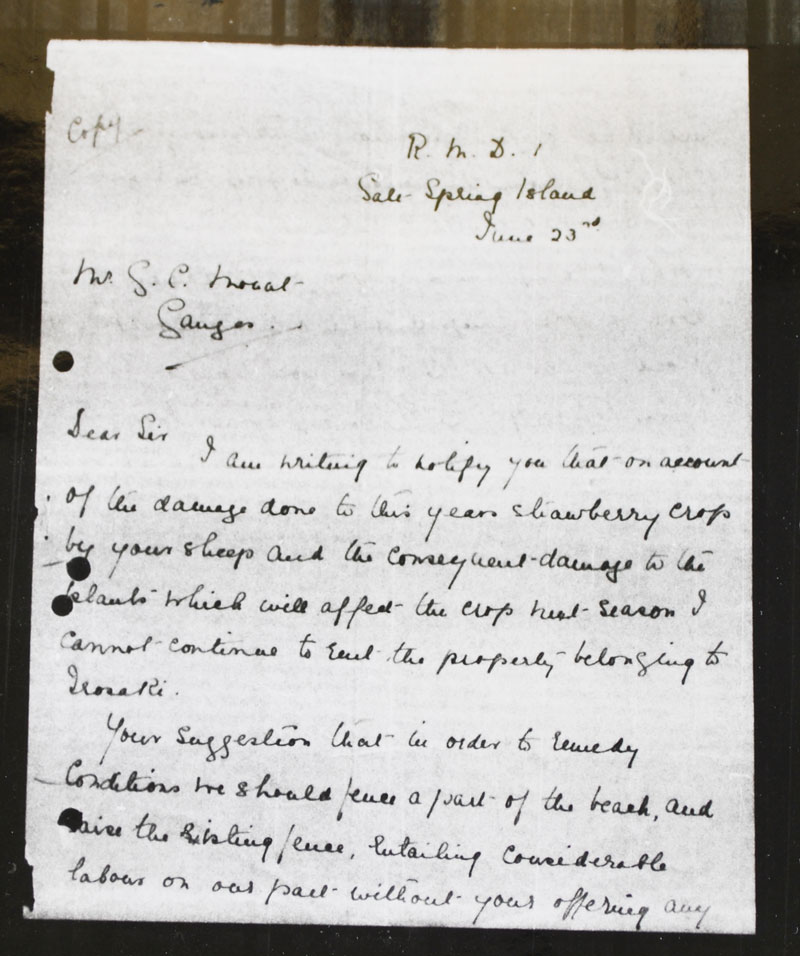 Copy -
R. M. D. 1
Salt Spring Island
June 23rd
Mr. G. C. Mouat
Ganges.
Dear Sir
I am writing to notify you that on account
of the damage done to this years strawberry crop
by your sheep and the consequent damage to the
plants which will affect the crop next season I
cannot continue to rent the property belonging to
Irosaki.
Your suggestion that in order to remedy
conditions we should fence a part of the beach, and
raise the existing fence, entailing considerable
labour on our part without your offering any